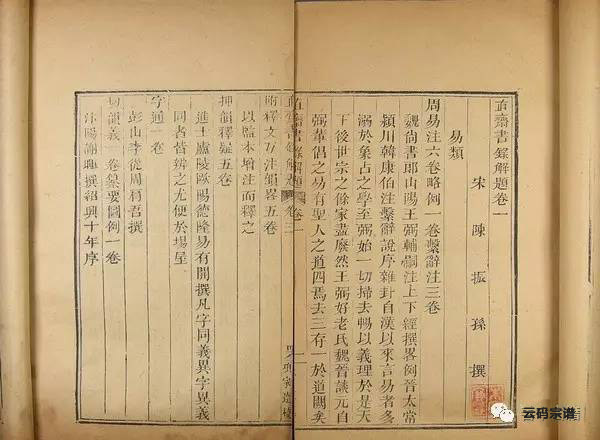 直齋書錄解題卷一
宋 陳振孫 撰
易類
周易注六卷略例一卷繫辭注三卷
魏尚書郎山陽王弼輔嗣注上下經撰畧例晉太常
潁川韓康伯注繫辭說序雜卦自漢以來言易者多
溺於象占之學至弼始一切掃去暢以義理於是天
下後世宗之餘家盡廢然王弼好老氏魏晉談元自
弼輩倡之易有聖人之道四焉去三存一於道闕矣
直齋書錄解題
卷一
一
卷三
附釋文互注韻畧五卷
以監本增注而釋之
押韻釋疑五卷
進士廬陵歐陽德隆易有開撰凡字同義異字異義
同者皆辨之尤便於場屋
字通一卷
彭山李從周肩吾撰
切韻義一卷纂要圖例一卷
汴陽謝暉撰紹興十年序
云码宗谱